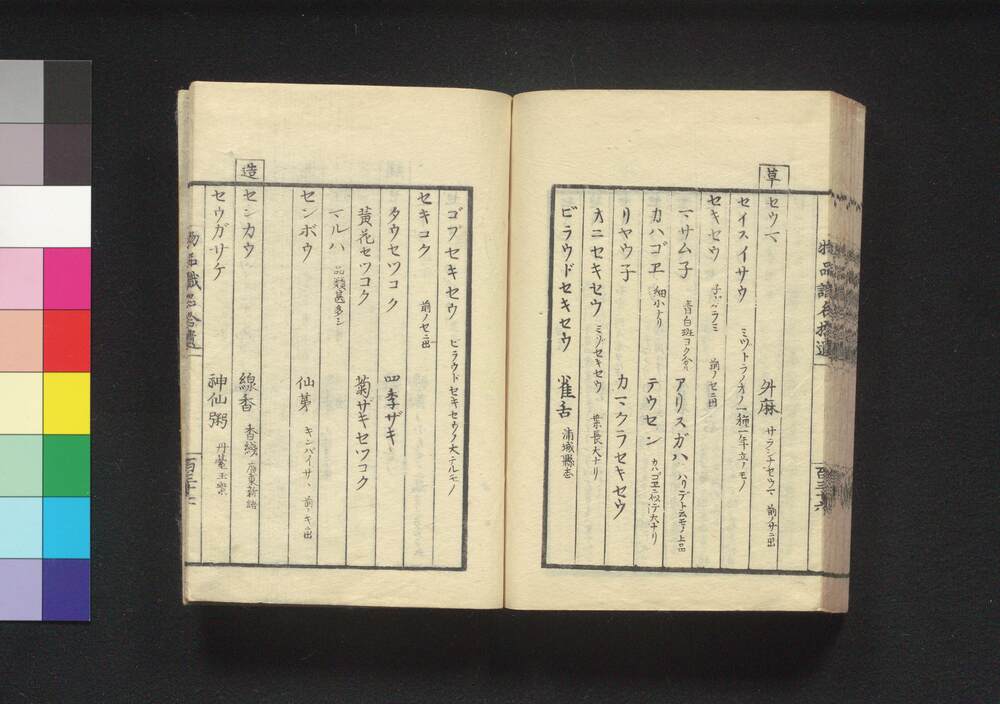 草
セウマ 升麻 サラシナセウマ 前ノサニ出
セイスイサウ ミヅトラノオノ一種一年立ノモノ
セキセウ 前ノセニ出
マサム子 青白斑 アリスガハ
カハゴヱ 細小ナリ テウセン カハゴヱニ似テ大ナリ
リヤウ子 カマクラセキセウ
オニセキセウ ミゾセキセウ 葉長大ナリ
ビラウドセキセウ 雀舌 浦城縣志
物品識名拾遺
百三十六
ゴブセキセウ ビラウドセキセウノ大ナルモノ
セキコク 前ノセニ出
タウセツコク 四季ザキ
黄花セツコク 菊ザキセツコク
マルハ 品類甚多シ
センボウ 仙茅 キンバイサヽ 前ノキニ出
造
センカウ 線香 香綫 廣東新語
セウガサケ 神仙粥
物品識名拾遺